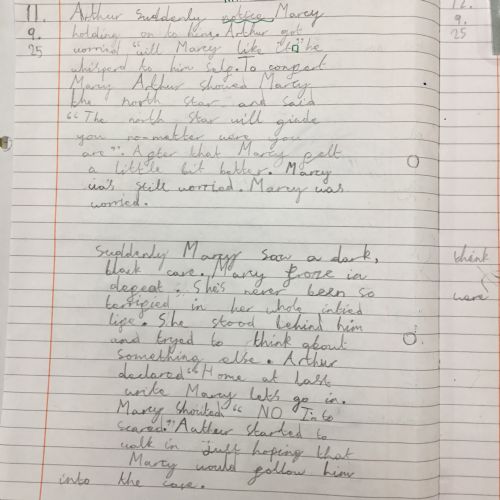 11. Arthur suddenly notice Marcy
9. holding on to him. Arthur got
25 worried "will Marcy like it" he
whisperd to him self. To confert
Marcy Arthur showed Marcy
the north star and said
"The north star will giade
you no-matter were you
are". After that Marcy felt
a little bit better. Marcy
was still worried. Marcy was
worried.
Suddenly Marcy saw a dark,
black cave. Marcy froze in
defeat. She's never been so
terrified in her whole intied
life. She stood behind him
and tryed to think about
something else. Arthur
declared "Home at last
write Marcy let's go in.
Marcy shouted "NO I'm so
scared." Auther started to
walk in just hoping that
Marcy would follow him
into the cave.
9.
25
think
were